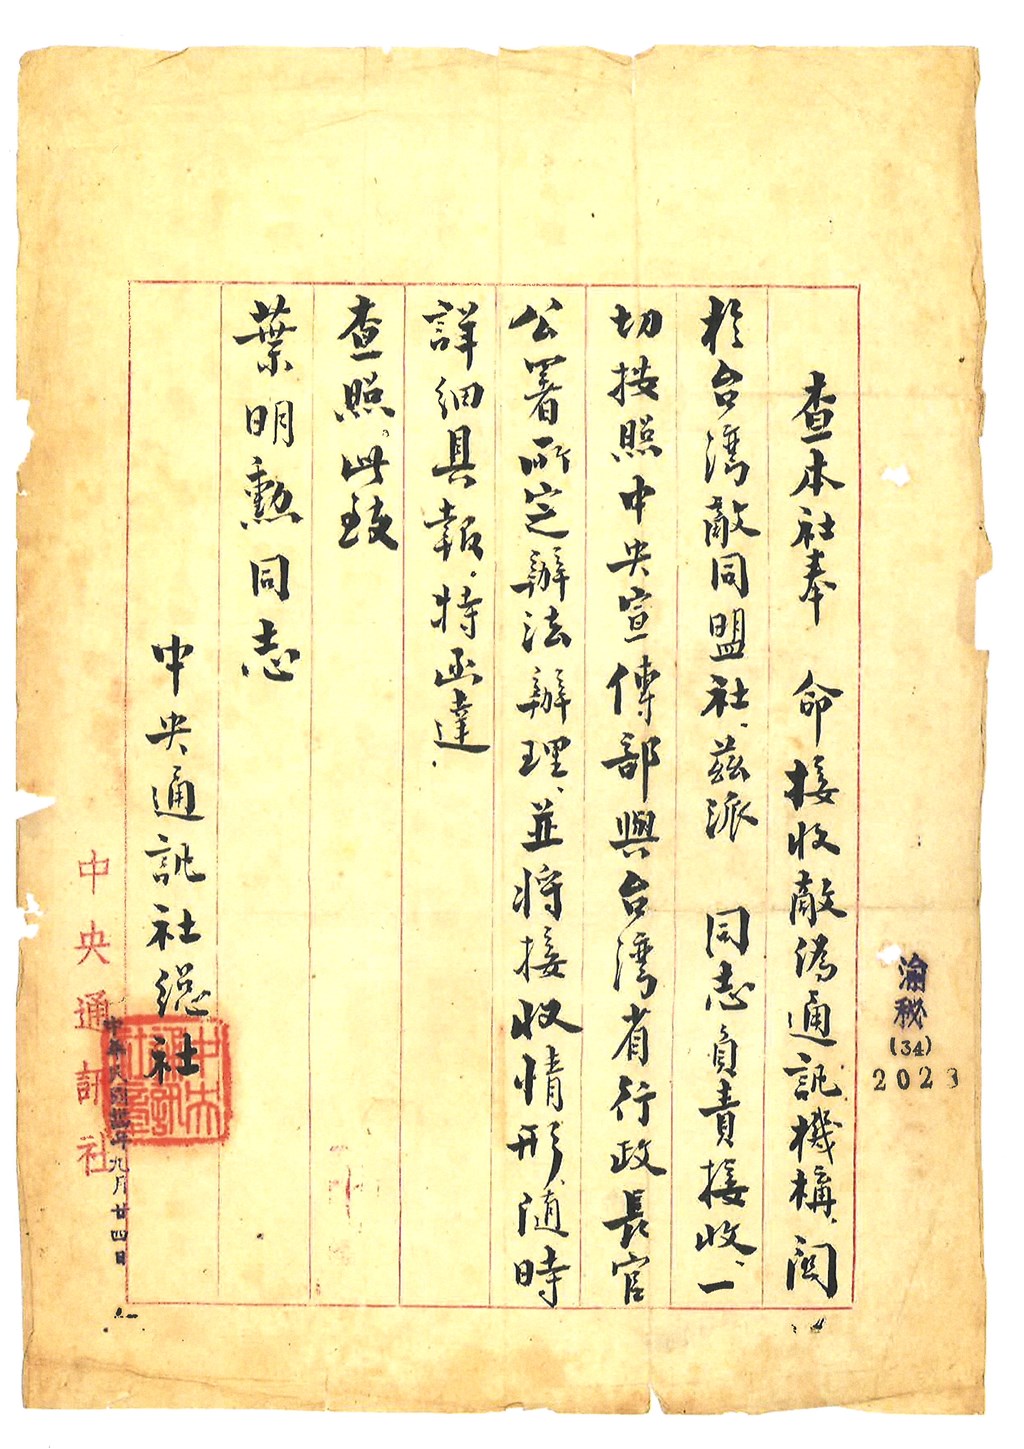 渝秘
(34)
2023
查本社奉　命接收敵偽通訊機構、關
於台灣敵同盟社、茲派　同志負責接收、一
切按照中央宣傳部與台灣省行政長官
公署所定辦法辦理、並將接收情形、隨時
詳細具報、特函達
查照。此致
葉明勳同志
中央通訊社總社
中央通訊社章
中華民國卅四年九月廿四日
中央通訊社